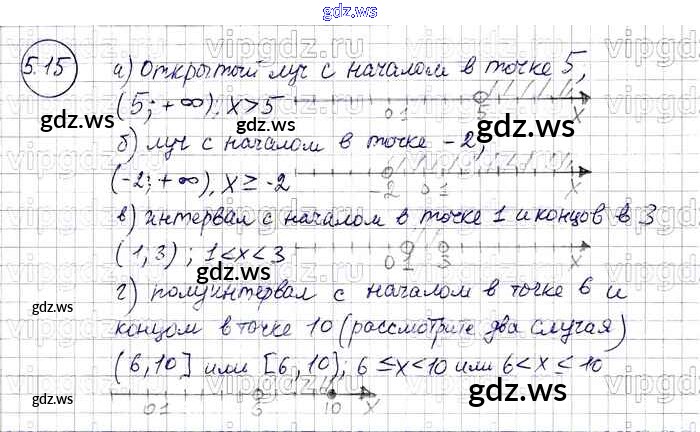 gdz.ws
5.15
а) открытый луч с началом в точке 5,
(5; +∞), x>5
0 1 5 x
б) луч с началом в точке -2,
(-2; +∞), x ≥ -2
-2 0 1 x
в) интервал с началом в точке 1 и концов в 3
(1,3); 1<x<3
0 1 3 x
г) полуинтервал с началом в точке 6 и
концом в точке 10 (рассмотрите два случая)
(6,10] или [6,10), 6 ≤x<10 или 6<x ≤ 10
0 1 10 x
gdz.ws
gdz.ws
gdz.ws
gdz.ws
gdz.ws
gdz.ws